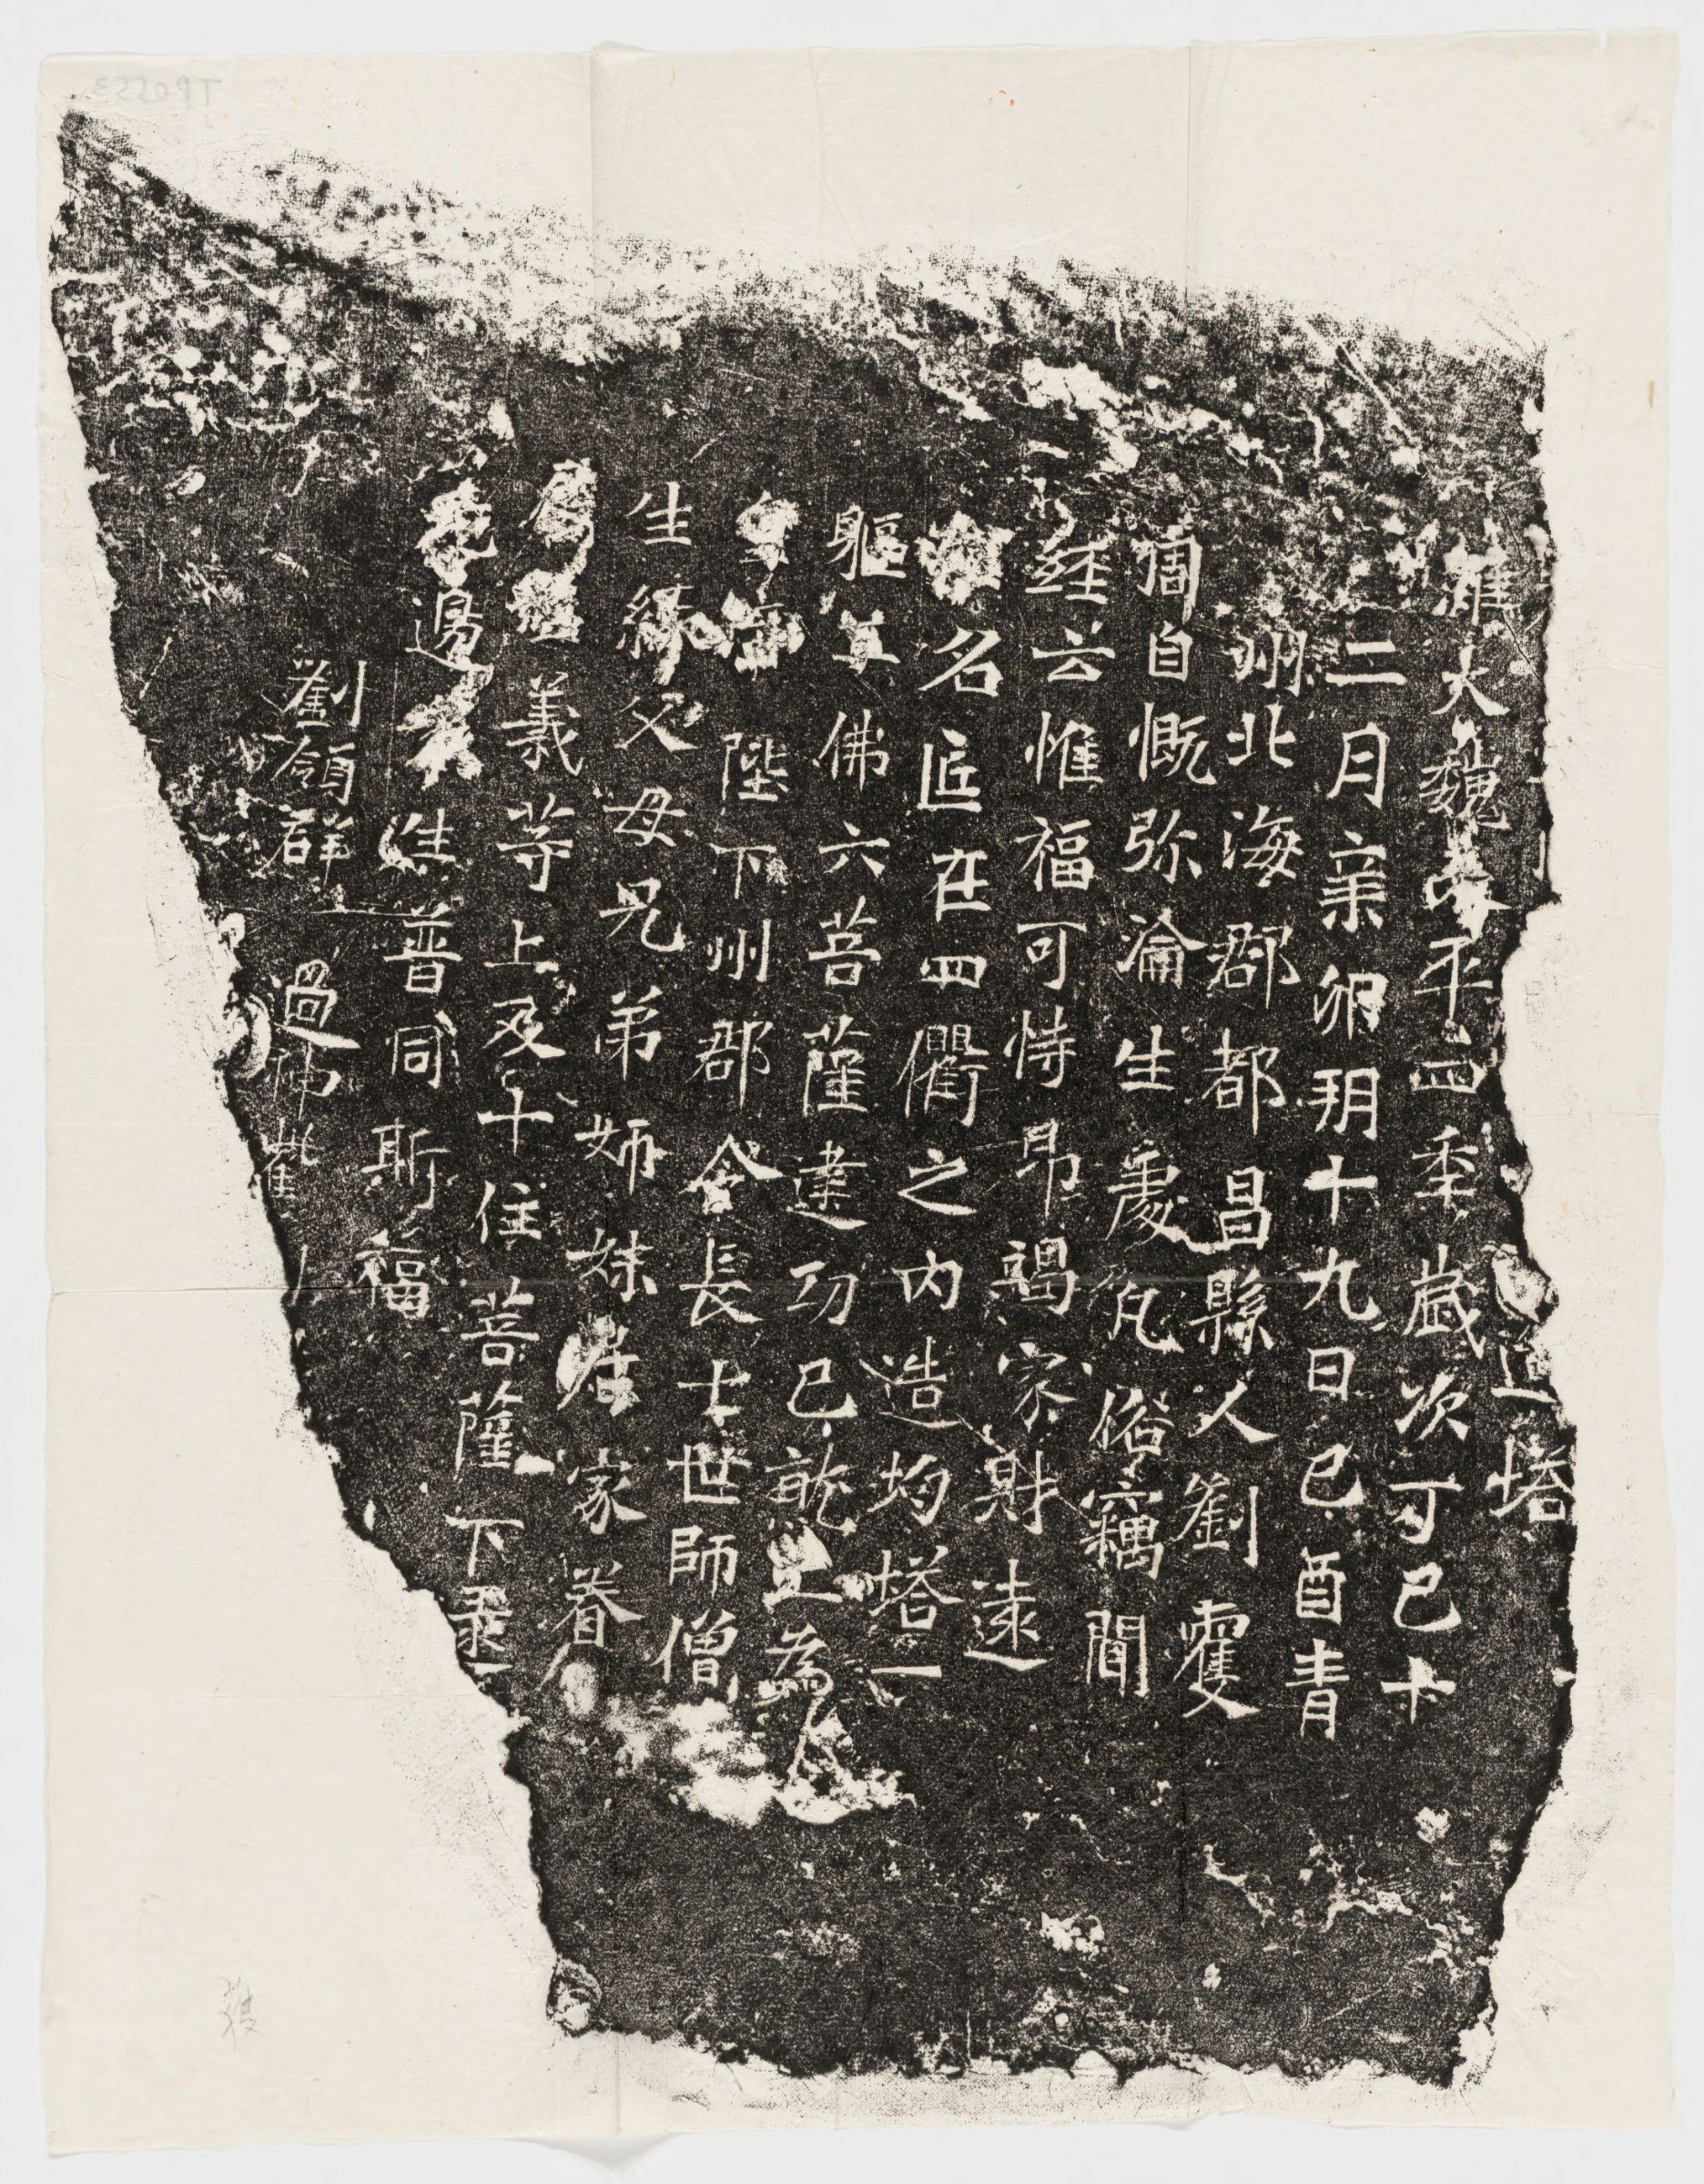 塔
維大魏天平四秊歲次丁巳十
二月辛卯玥十九日己酉青
州北海郡都昌縣人劉䨥
獨自慨弥淪生處凡俗竊聞
經云惟福可恃昂竭家財遠
名匠在四衢之内造均塔一
軀并佛六菩薩建功已訖上為
陛下州郡令長士世師僧
生緣父母兄弟姉妹居家眷
義等上及十住菩薩下
邊衆生普同斯福
劉領群